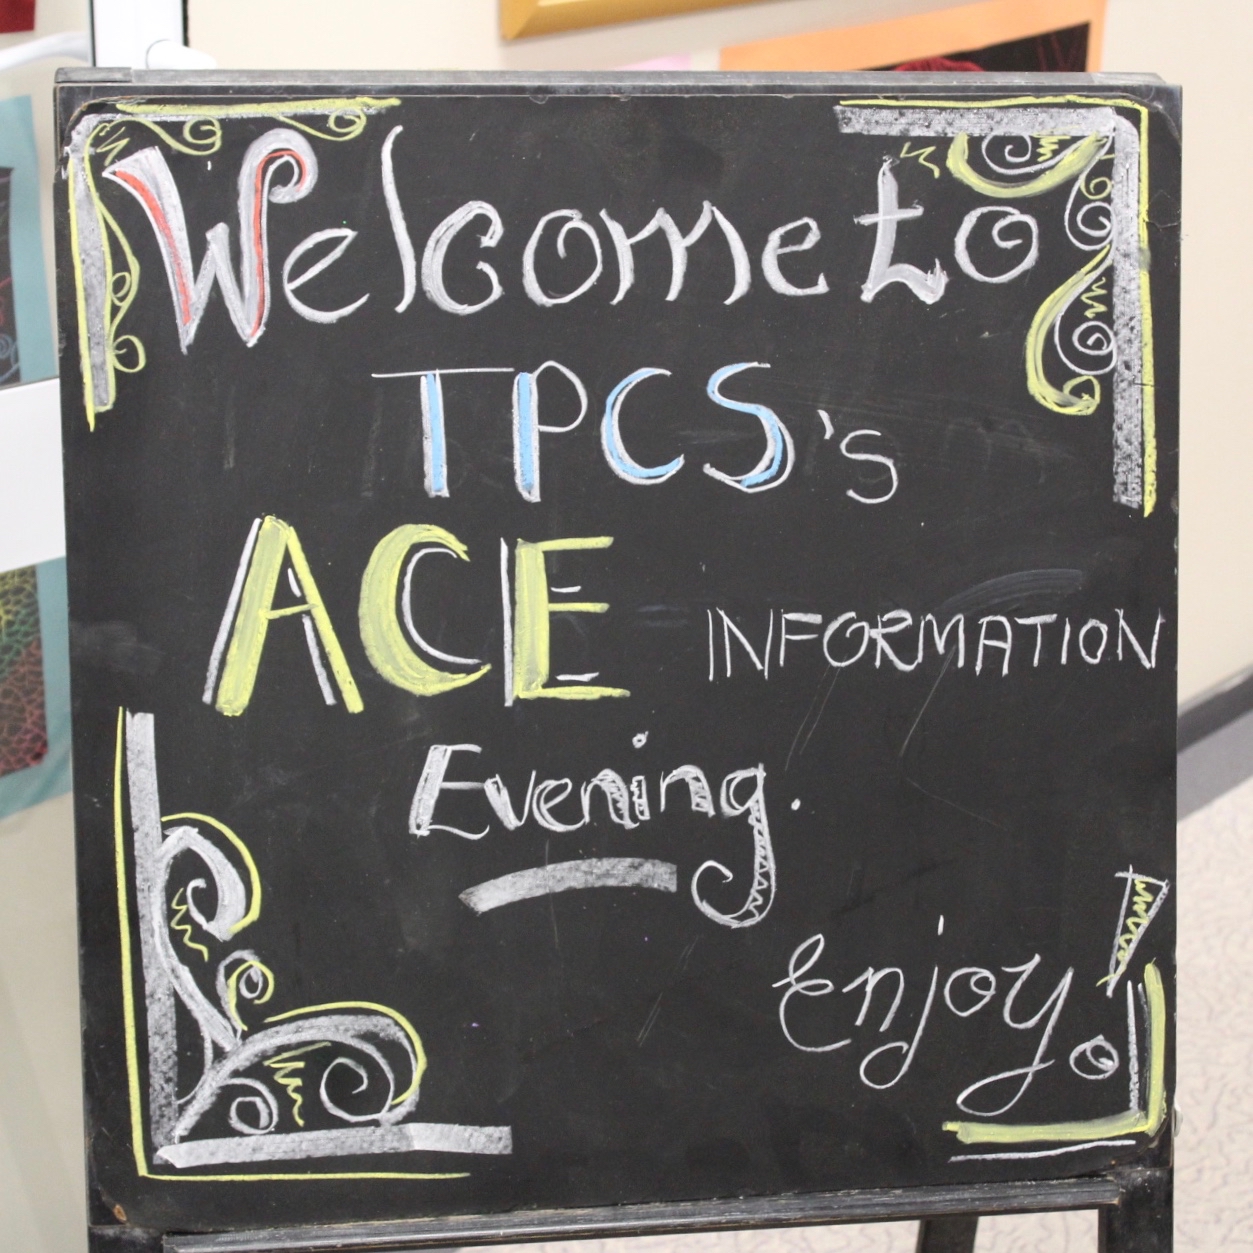 Welcome to
TPCS's
ACE INFORMATION
Evening.
Enjoy!